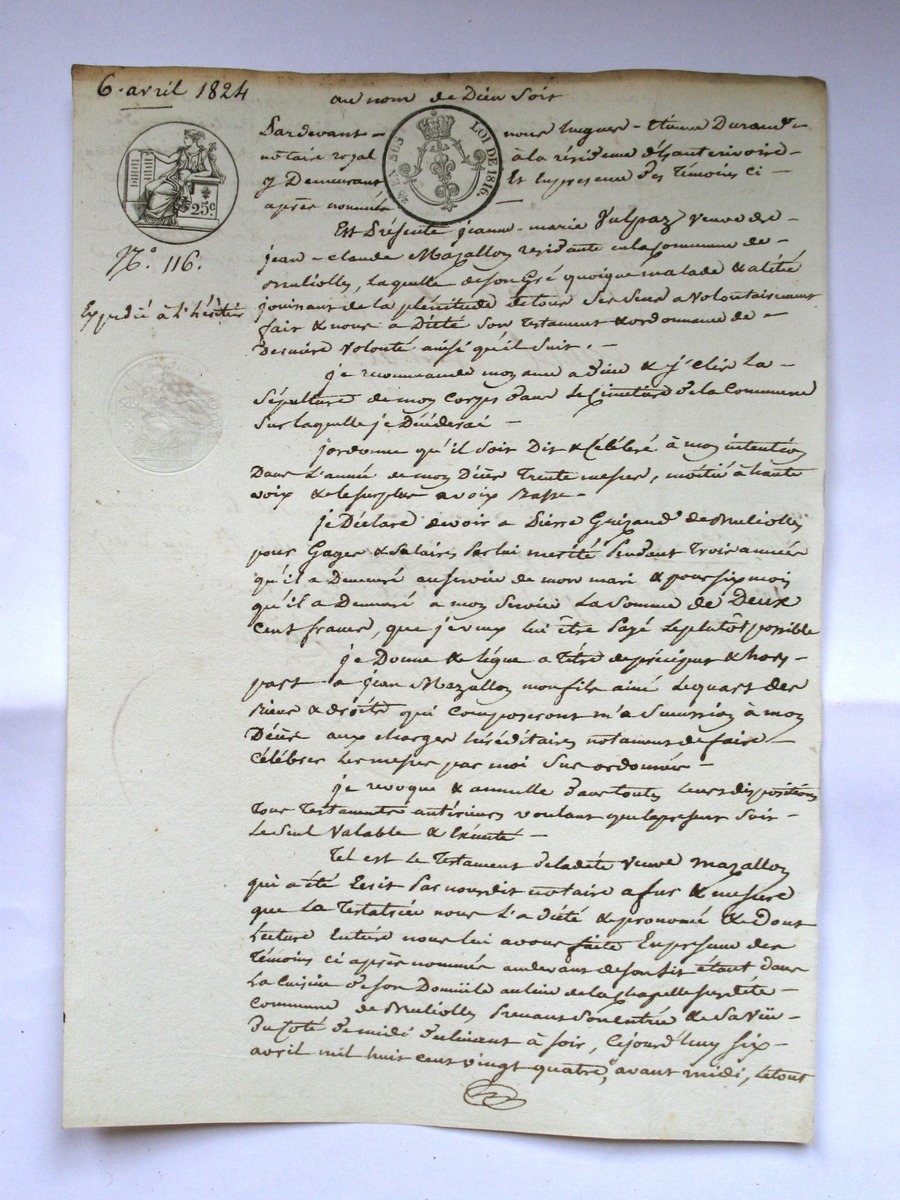 6. avril 1824
au nom de Dieu soit
25 c.
EN SUS
LOI DE 1816.
N.° 116.
Expédié à l'héritier
Pardevant - nous hugues - Durand -
notaire royal à la résidence -
y Demeurant Et En presence des Témoins ci -
après nommés -
Est Présente jeanne - marie veuve de -
jean - claude Mazallon residante en la Commune de -
Brulioles, Laquelle de son Gré quoique malade & alitée
jouissant de la plénitude de tous ses sens a volontairement
fait & nous a Dicté son Testament & ordonnance de -
Derniere volonté ainsi qu'il suit. -
je recommande mon ame a Dieu & j'élis La -
Sépulture de mon corps dans le Cimetiere de la Commune
sur laquelle je Décéderai -
j'ordonne qu'il soit Dit & Célébré à mon intention
Dans L'année de mon Décès Trente messes, moitié à haute
voix & le surplus a voix Basse -
je Déclare devoir a Pierre de Brulioles
pour Gages & Salaires par lui mérité Pendant Trois années
qu'il a Demeuré au service de mon mari & pour six mois
qu'il a Demeuré a mon Service La Somme de Deux
Cent francs, que je veux lui être Payé le plutôt possible
je Donne & Lègue a Titre de préciput & hors -
part a jean Mazallon mon fils ainé Le quart des
Biens & droits qui composeront ma Succession à mon
Décès aux charges héréditaires notament de faire -
célébrer les messes par moi sus ordonnées -
je revoque & annulle dans toutes leurs dispositions
Tous Testaments antérieurs voulant que le present soit -
Le seul valable & Exécuté -
Tel est le Testament de ladite veuve mazallon
qui a été Ecrit Par nous dit notaire a fur & mesure
que La Testatrice nous l'a dicté & prononcé & Dont
Lecture Entière nous lui avons faite En presence des
Témoins ci après nommés au devant de son lit étant dans
La Cuisine de son Domicile au lieu de la chapelle susdite
Commune de Brulioles Prenant son entrée & sa vue -
Du Coté de midi déclinant à soir, Cejourd'huy six -
avril mil huit cent vingt quatre, avant midi, le tout